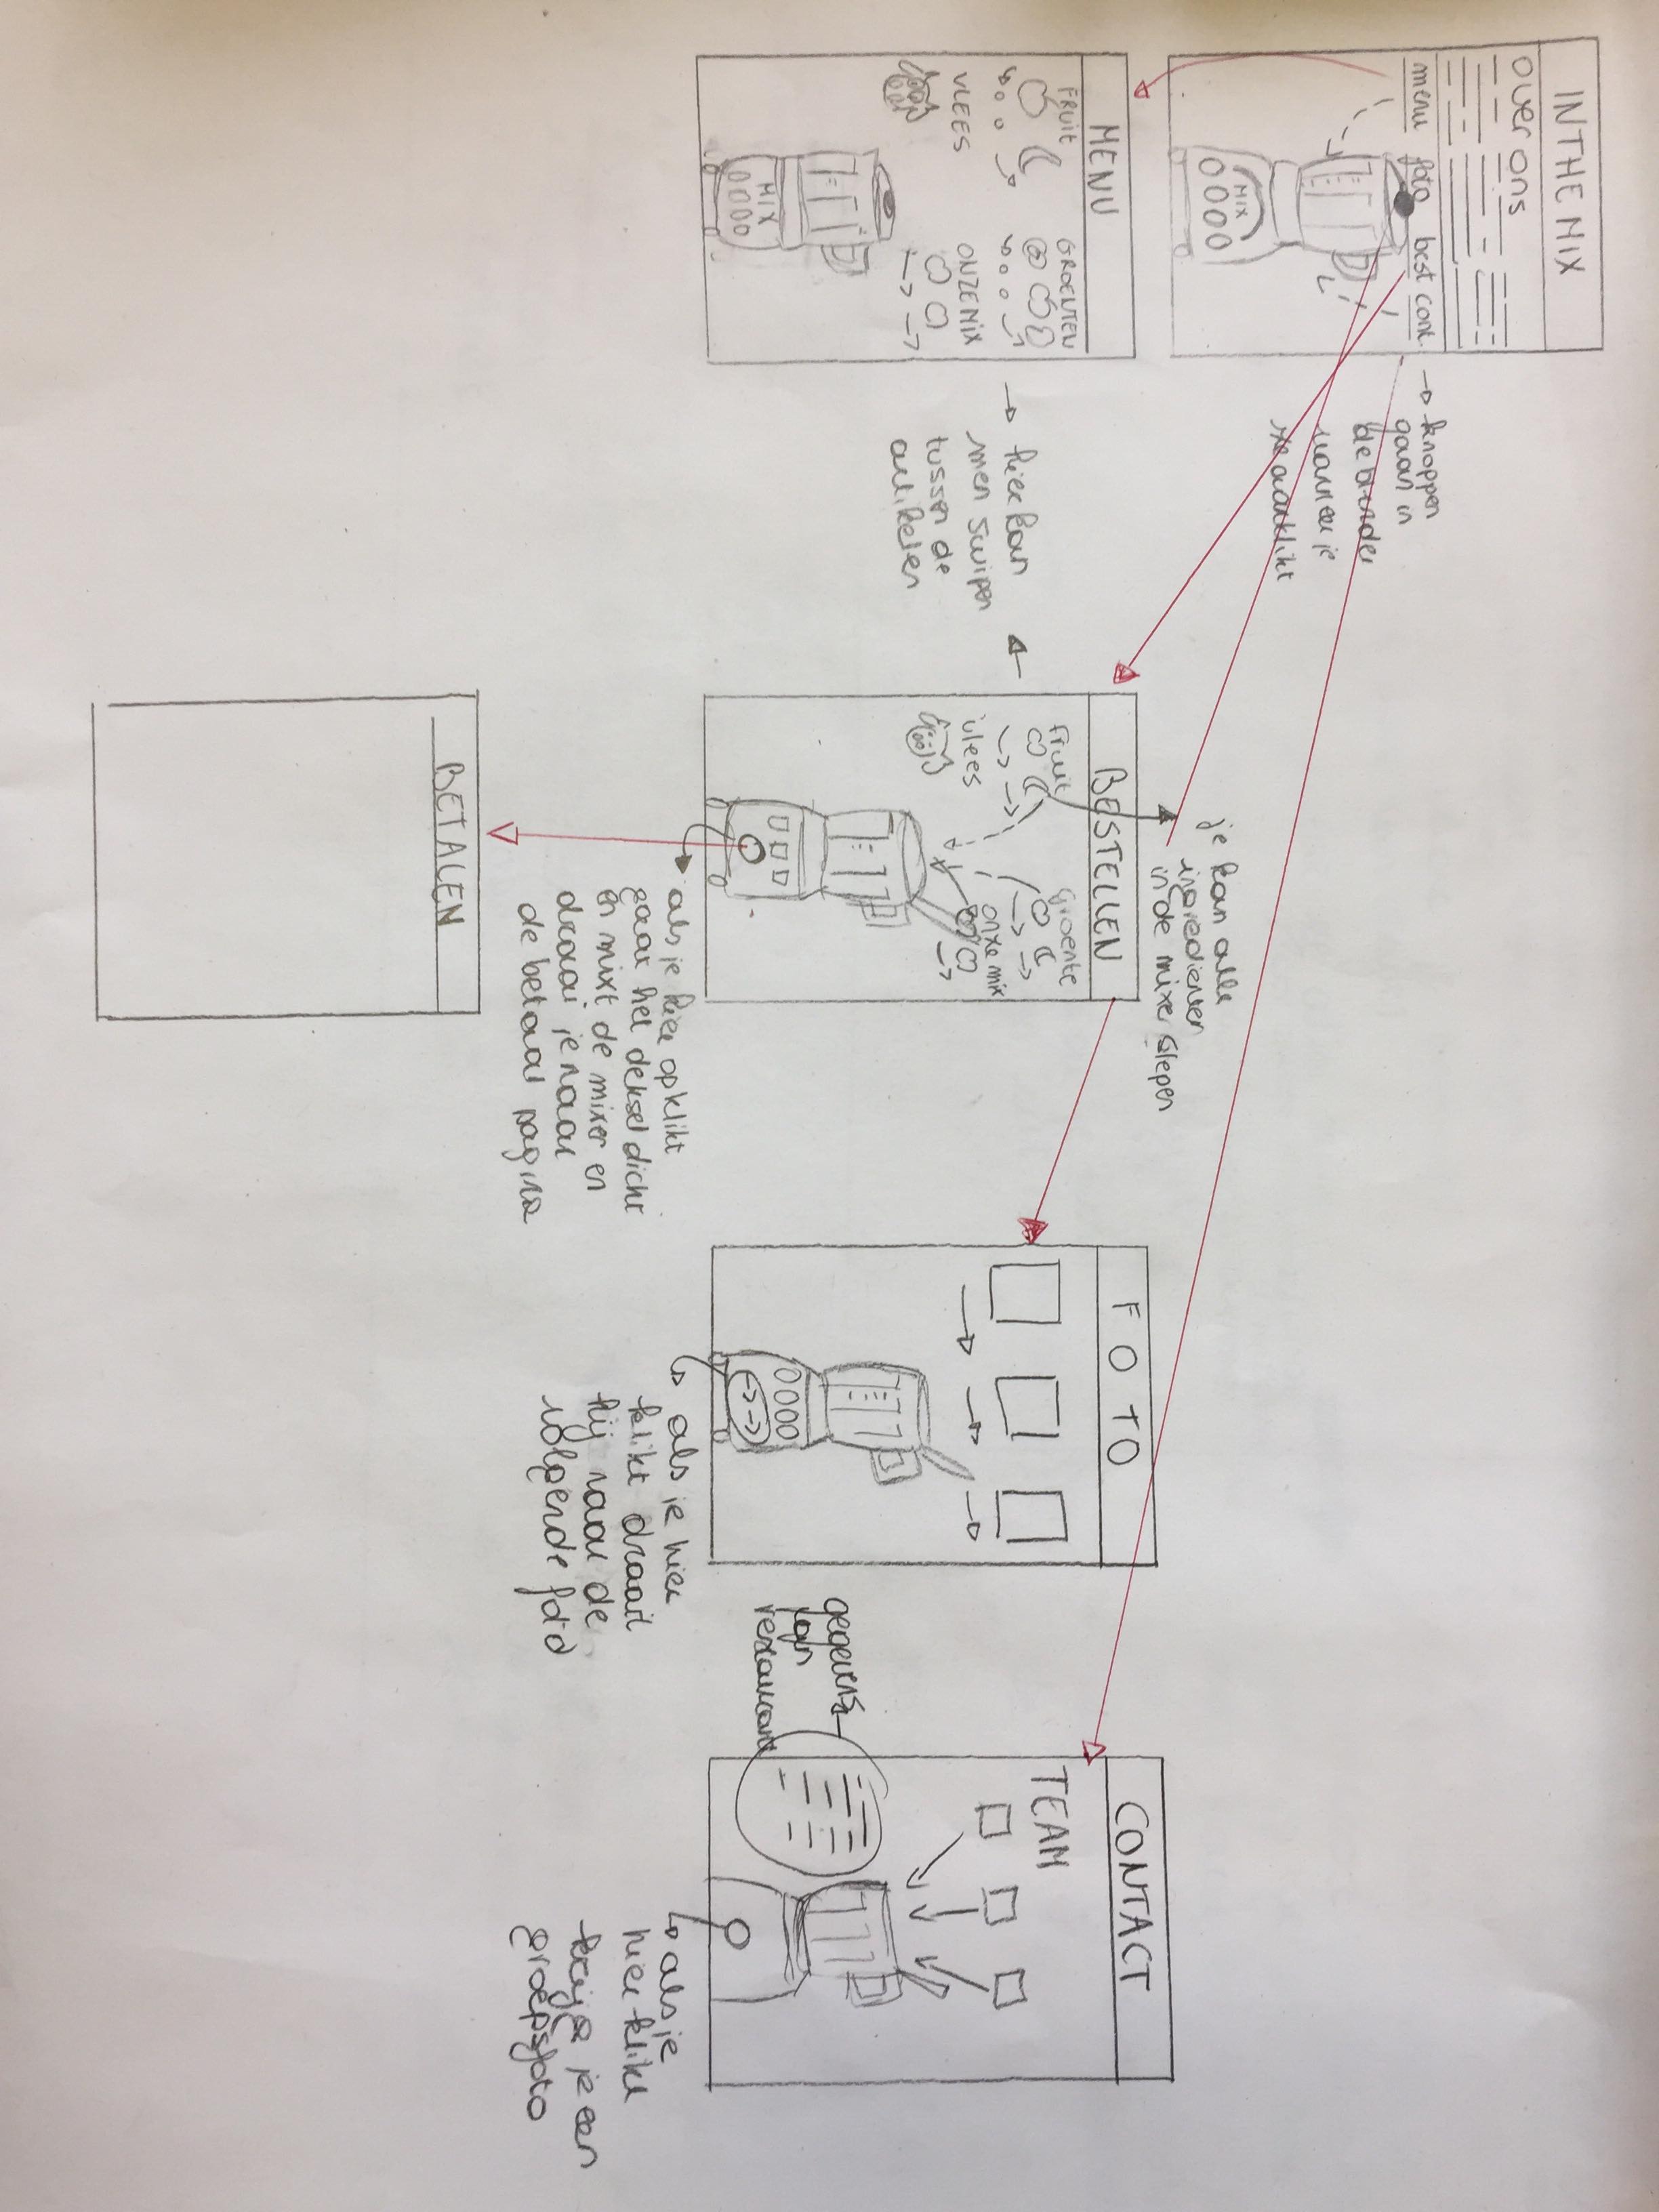 IN THE MIX
over ons
menu foto best cont.
MIX
→ knoppen
gaan in
de blender
wanneer je
ze aanklikt
MENU
FRUIT
GROENTEN
VLEES
ONZE MIX
MIX
→ hier kan
men swipen
tussen de
artikelen
je kan alle
ingrediënten
in de mixer slepen
BESTELLEN
fruit
groente
vlees
onze mix
als je hier opklikt
gaat het deksel dicht
en mixt de mixer en
draai je naar
de betaal pagina
BETALEN
FOTO
als je hier
klikt draait
hij naar de
volgende foto
CONTACT
TEAM
gegevens
login
restaurant
als je
hier klikt
krijg je een
groepsfoto